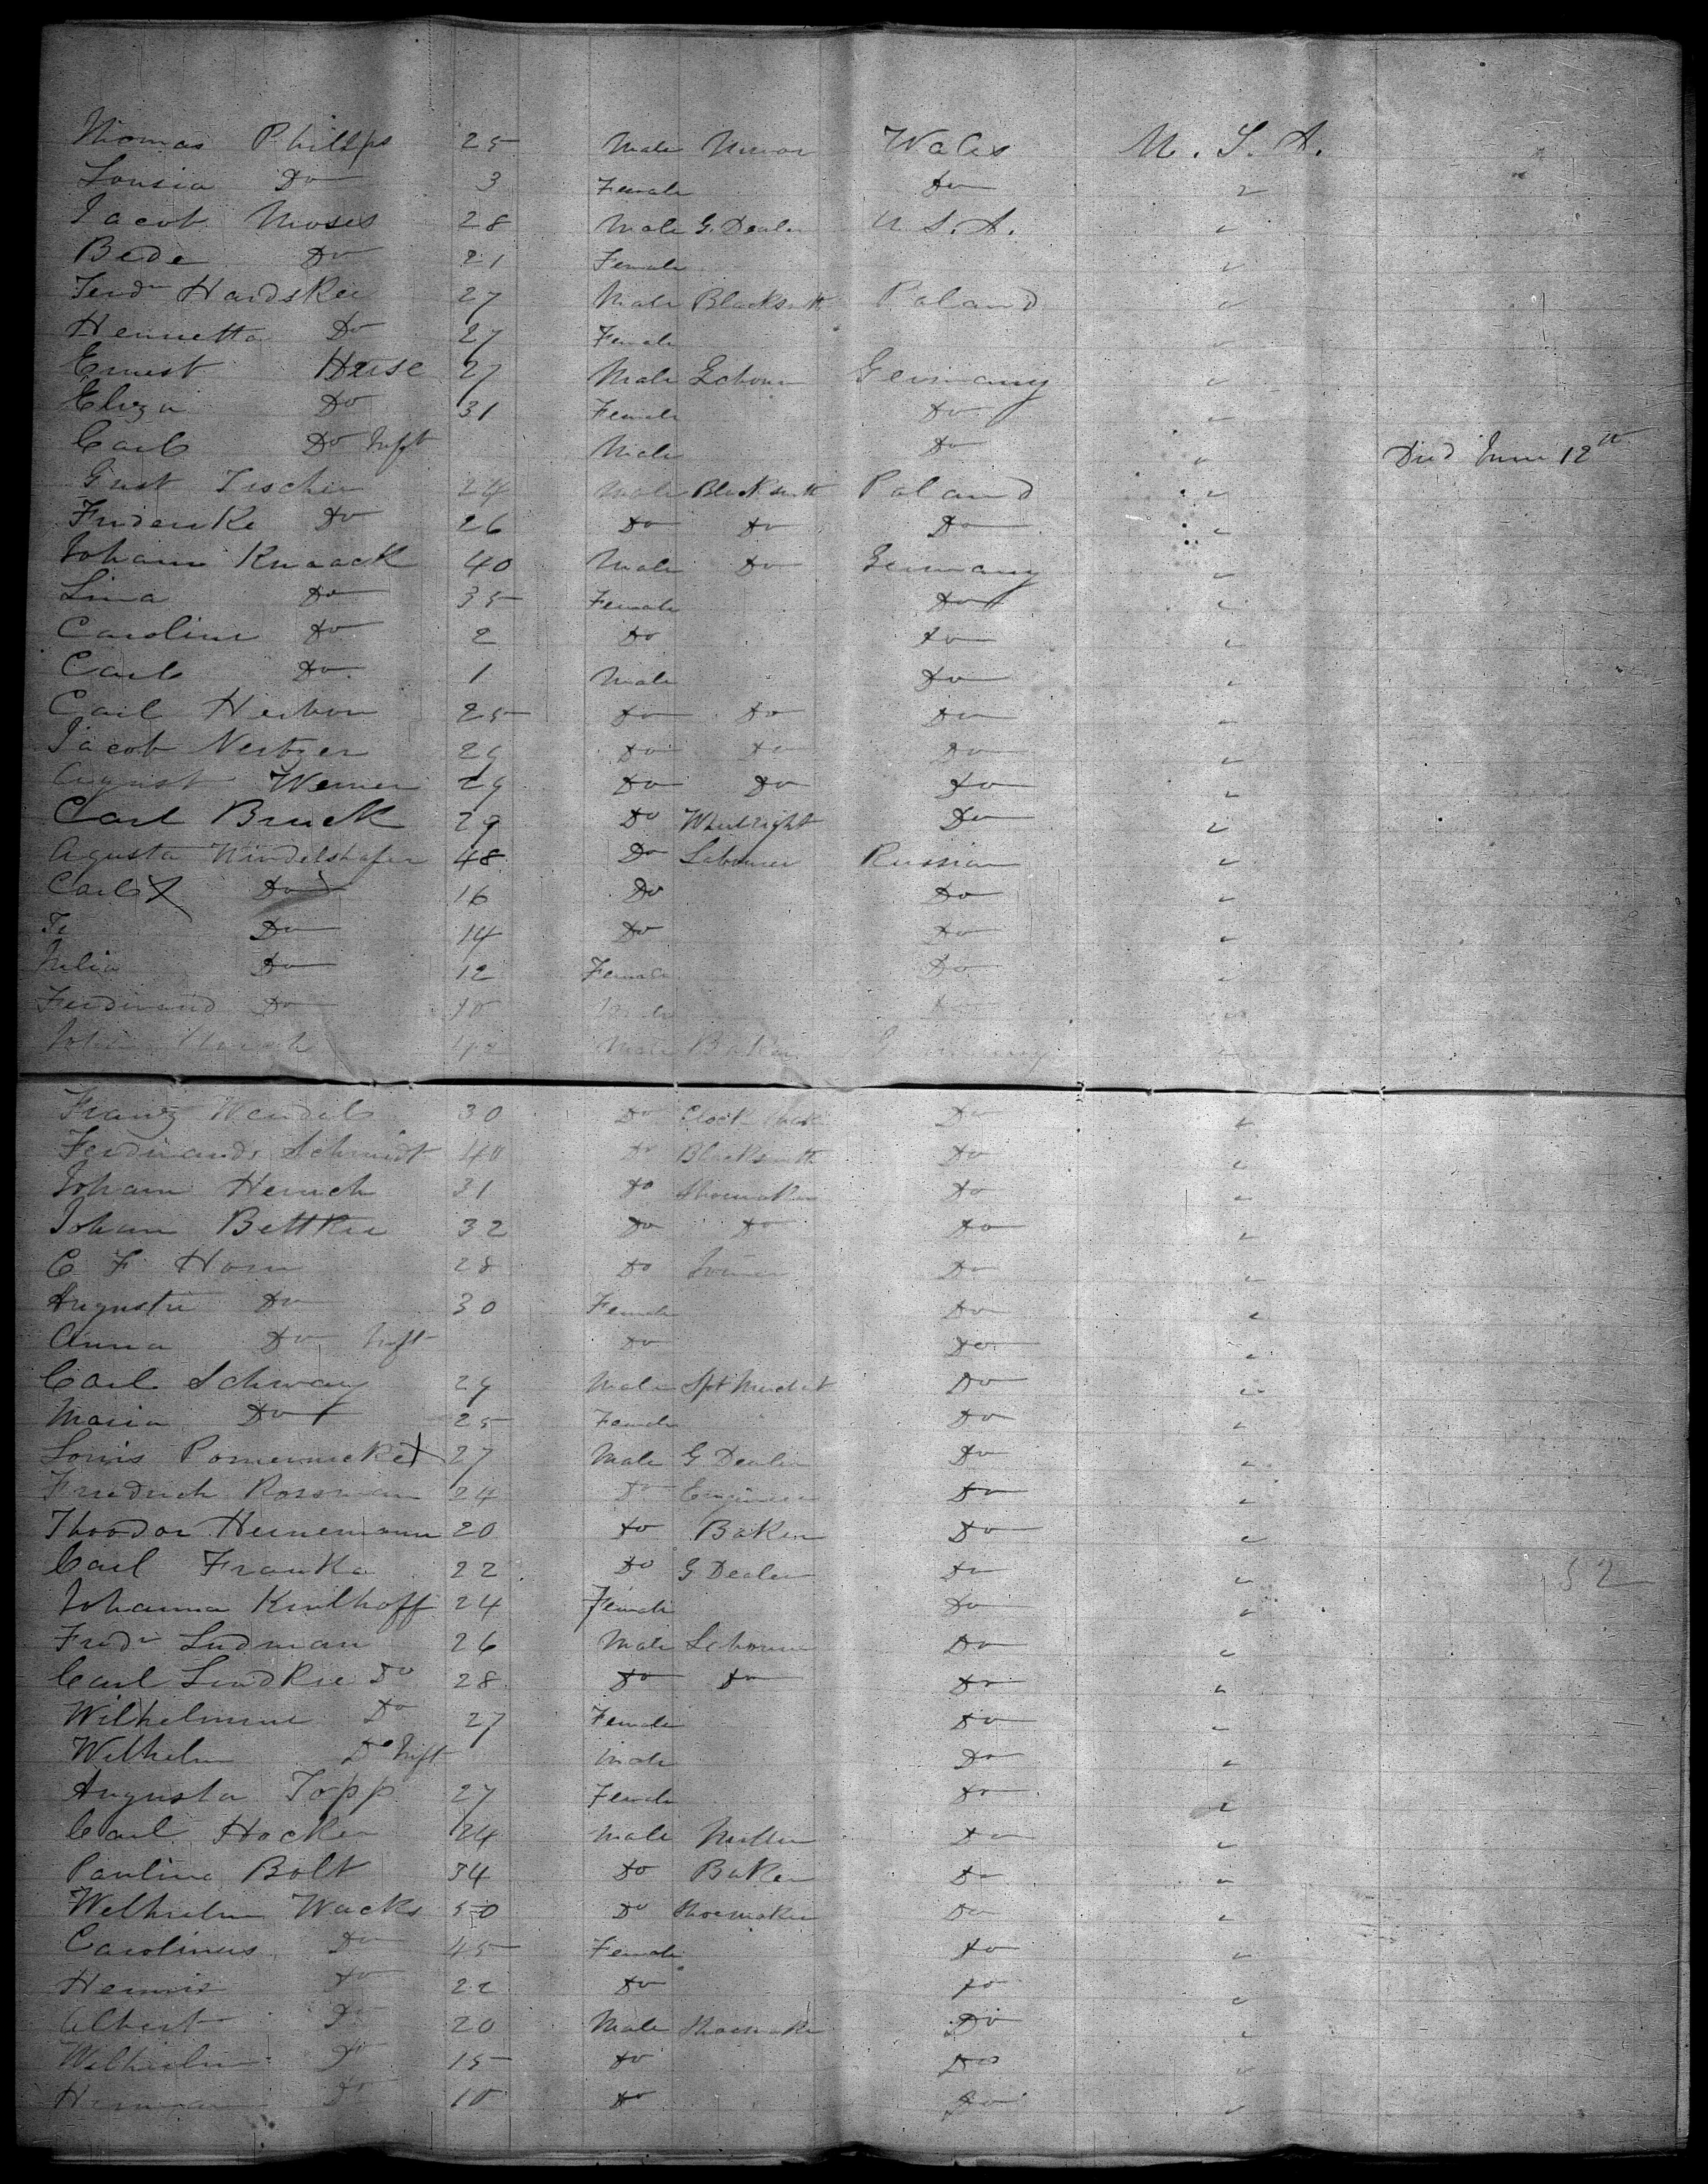 Thomas Phillps 25 Male Minor Wales U. S. A.
Lousia Do 3 Female Do "
Jacob Moses 28 Male G. Dealer U. S. A. "
Bede Do 21 Female "
Ferdn HardsKee 27 Male Blacksmith Poland "
Hennetta Do 27 Female "
Ernest Hesse 27 Male Labour Germany "
Eliza Do 31 Female Do "
Carl Do Inft Male Do " Died June 12th
Gust Tischer 24 Male Blacksmith Poland "
FriderKe Do 26 Do Do Do "
Johann Knaack 40 Male Do Germany "
Lina Do 35 Female Do "
Caroline Do 2 Do Do "
Carl Do 1 Male Do "
Carl Herbon 25 Do Do Do "
Jacob Nertzer 29 Do Do Do "
August Werner 29 Do Do Do "
Carl Bruck 29 Do Wheelright Do "
Agusta Windelshafer 48 Do Labourer Russian "
Carl Do 16 Do Do "
Do 14 Do Do "
Julia Do 12 Female Do "
Ferdinand Do 10 Male Do "
John 40 Male Baker Germany "
Franz Wendel 30 Do Clock Do "
Ferdinands Schmidt 40 Do Blacksmith Do "
Joham Henrich 31 Do Shoemaker Do "
Johan BettKee 32 Do Do Do "
C F Horn 28 Do Do "
Auguste Do 30 Female Do "
Anna Do Inft Do Do "
Carl Schwarz 29 Male Do "
Maria Do 25 Female Do "
Louis PomernicKe 27 Male G Dealer Do "
Friedrich Rossman 24 Do Engineer Do "
Theodor Heinemann 20 Do Baker Do "
Carl Franka 22 Do G Dealer Do " 52
Johanna Kinlhoff 24 Female Do "
Fredr Ludman 26 Male Labourer Do "
Carl LindKee Do 28 Do Do Do "
Wilhelmine Do 27 Female Do "
Wilhelm Do Inft Male Do "
Augusta Topp 27 Female Do "
Carl Hocker 24 Male Miller Do "
Paulina Bolt 34 Do Baker Do "
Welhielm Wacks 50 Do Shoemaker Do "
Carolines Do 45 Female Do "
Do 22 Do Do "
Albert Do 20 Male Shoemaker Do "
Welhielm Do 15 Do Do "
Herman Do 10 Do Do "